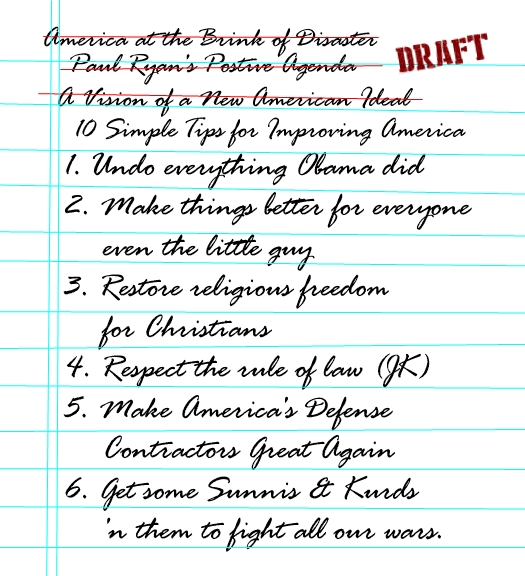 America at the Brink of Disaster
DRAFT
Paul Ryan's Postive Agenda
A Vision of a New American Ideal
10 Simple Tips for Improving America
1. Undo everything Obama did
2. Make things better for everyone
even the little guy
3. Restore religious freedom
for Christians
4. Respect the rule of law (JK)
5. Make America's Defense
Contractors Great Again
6. Get some Sunnis & Kurds
'n them to fight all our wars.